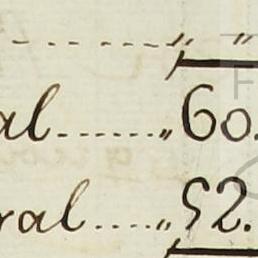 ----------- " "
al...... „ 60.
ral..... „ 52.